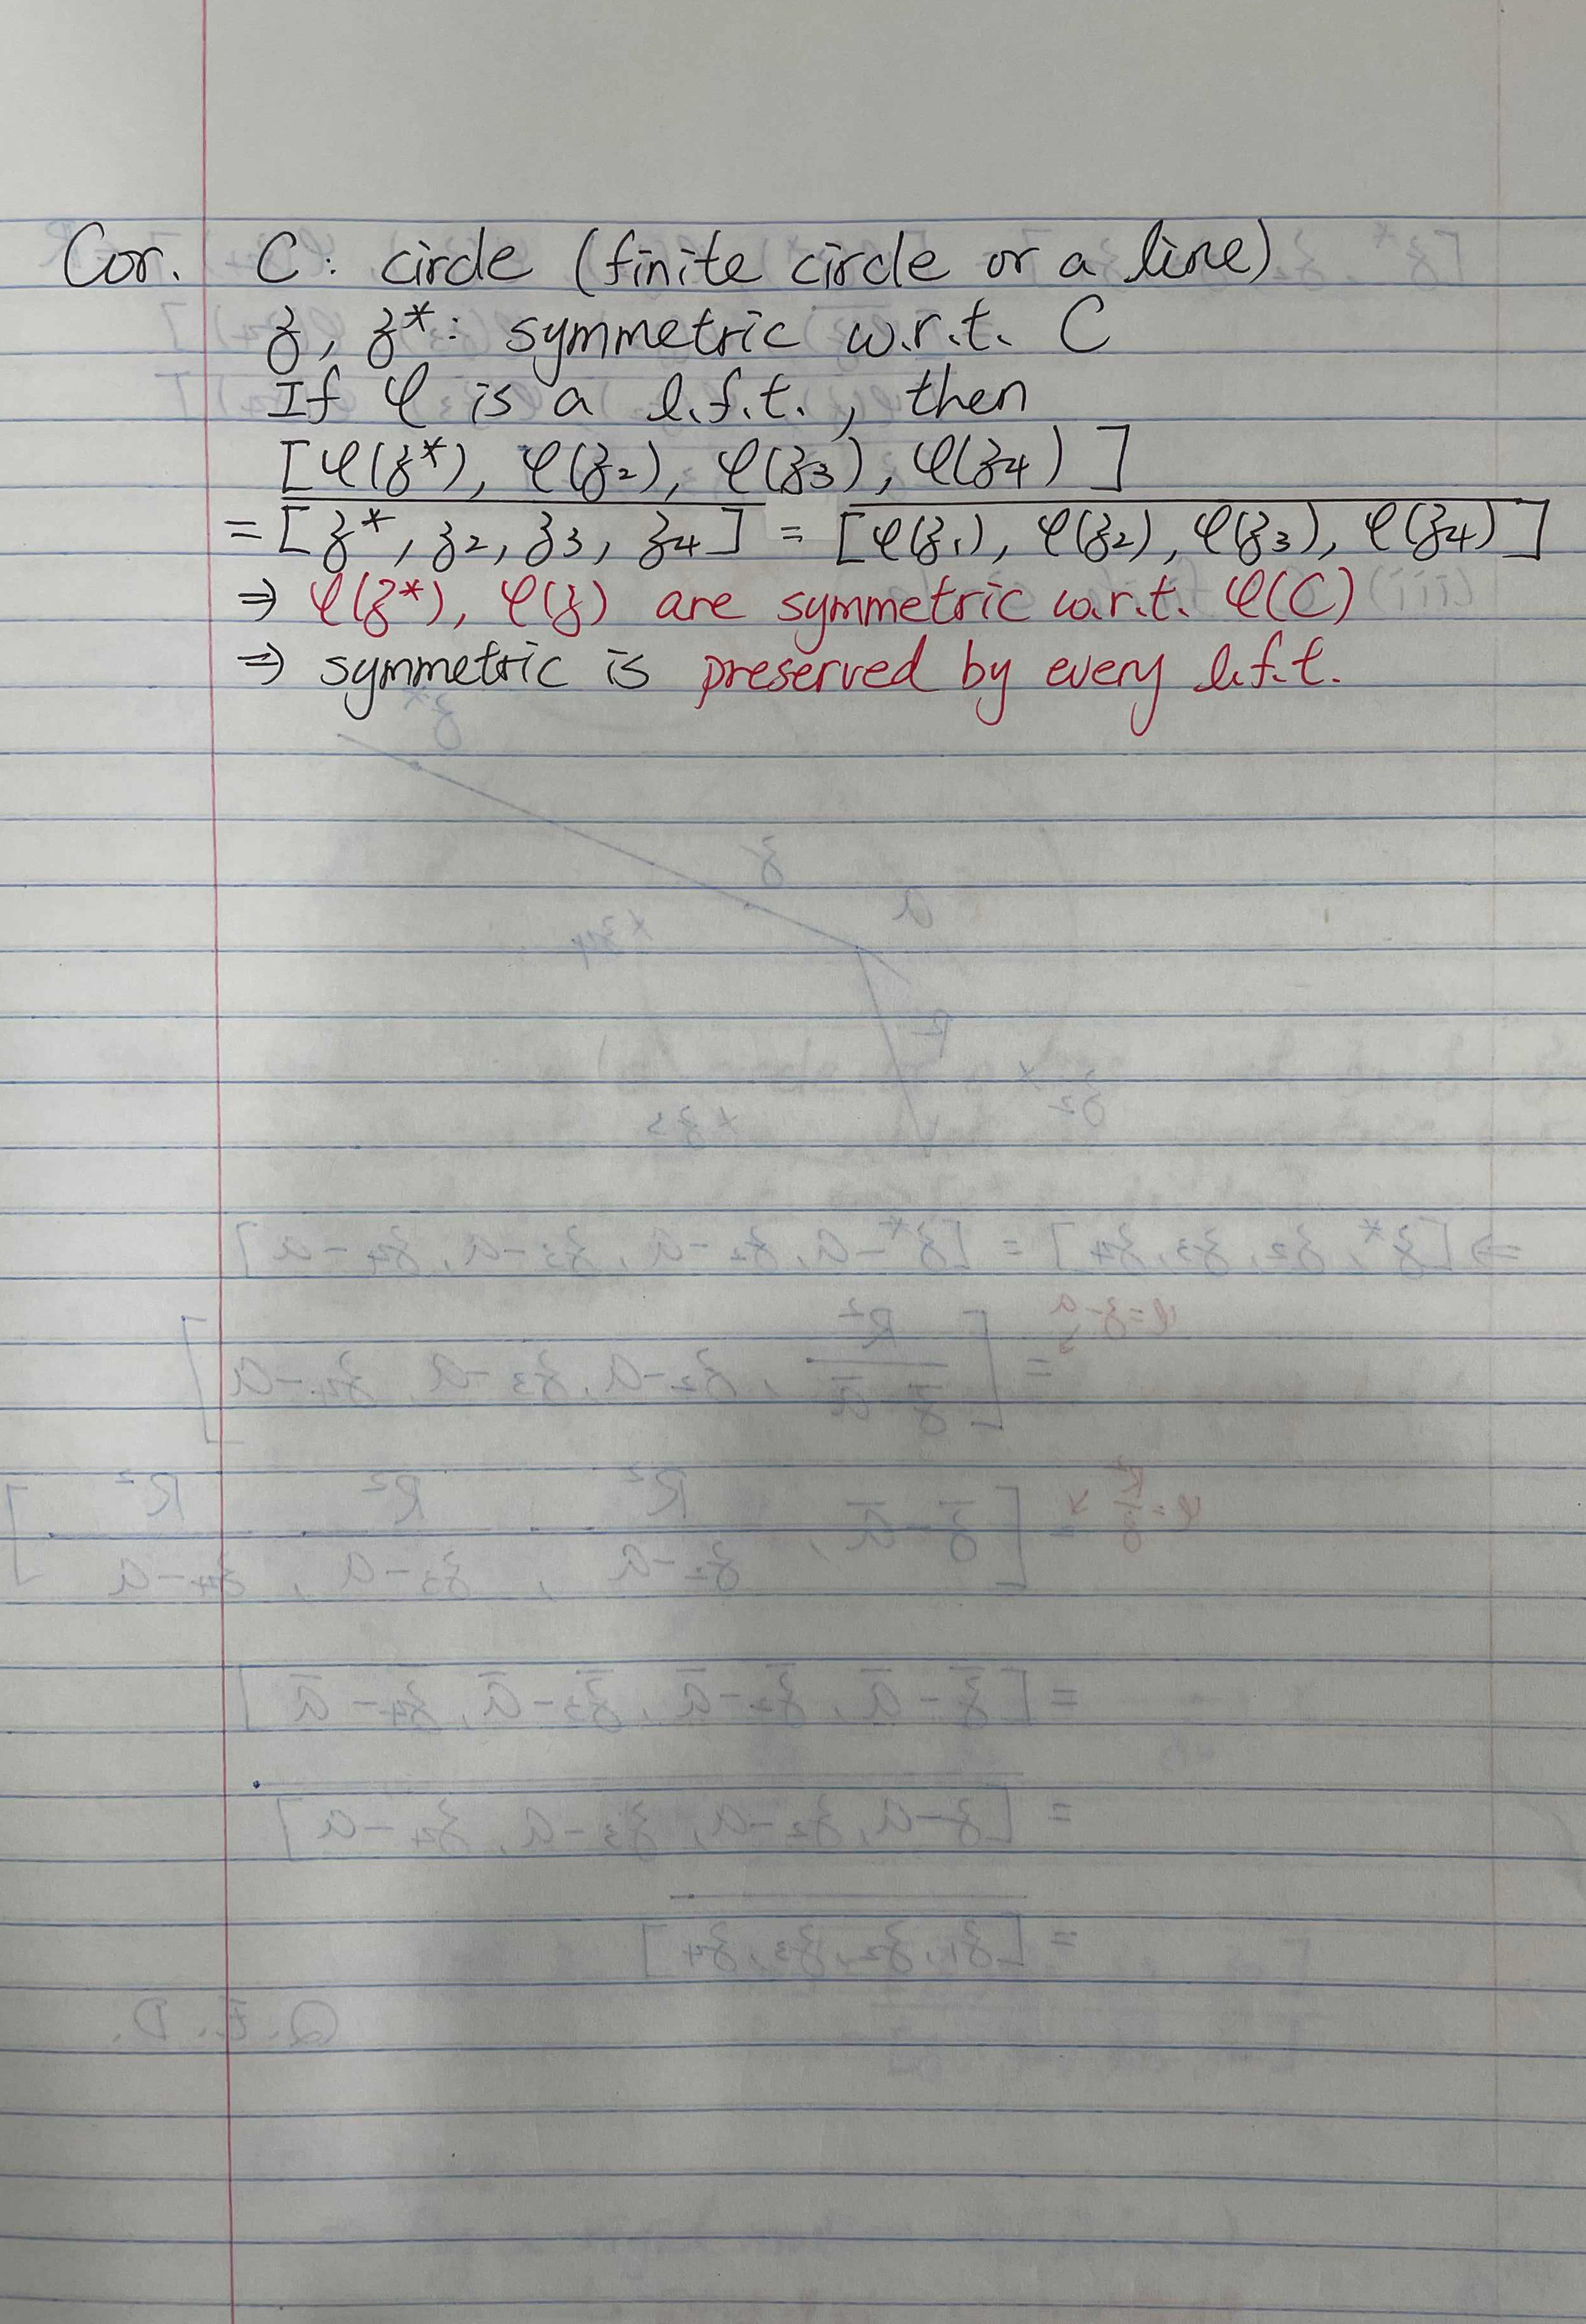 Cor. C: circle (finite circle or a line)
z, z*: symmetric w.r.t. C
If φ is a l.f.t., then
[φ(z*), φ(z₂), φ(z₃), φ(z₄)]
= \overline{[z*, z₂, z₃, z₄]} = \overline{[φ(z₁), φ(z₂), φ(z₃), φ(z₄)]}
⇒ φ(z*), φ(z) are symmetric w.r.t. φ(C)
⇒ symmetric is preserved by every l.f.t.